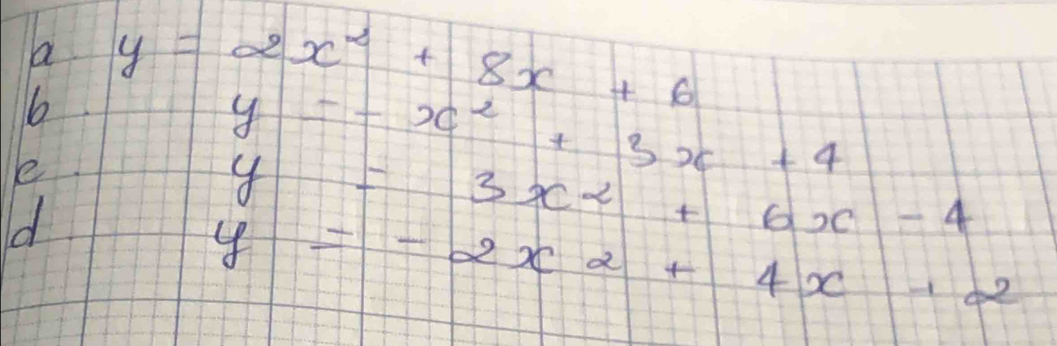 a. y = 2x² + 8x + 6
b. y = - x² + 3x + 4
c. y = 3x2 + 6x - 4
d y = - 2x2 + 4x - 2